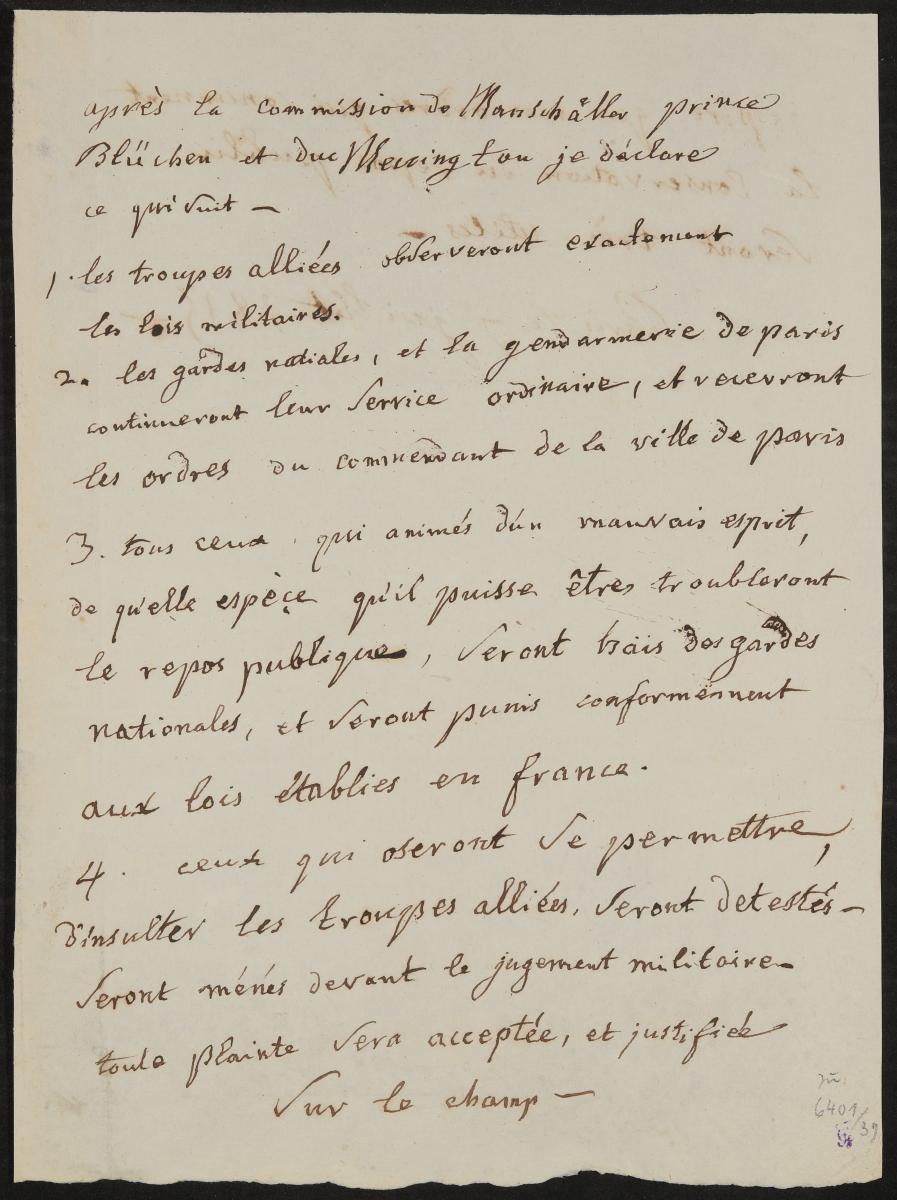 après la commission de Marischäller prince
Blüchen et duc Wewington je déclare
ce qui suit —
1. les troupes alliées observeront exactement
les lois militaires.
2. les gardes natiales, et la gendarmerie de paris
continueront leur service ordinaire, et recevront
les ordres du commendant de la ville de paris
3. tous ceux qui animés dún mauvais esprit,
de qu'elle espèçe qu'il puisse êtres troubleront
le repos publique, seront hais des gardes
nationales, et seront punis conformément
aux lois établies en france.
4. ceux qui oseront se permettre,
d'insulter les troupes alliées, seront detestés—
seront ménés devant le jugement militaire—
toute plainte sera acceptée, et justifiée
sur le champ —
6401/39